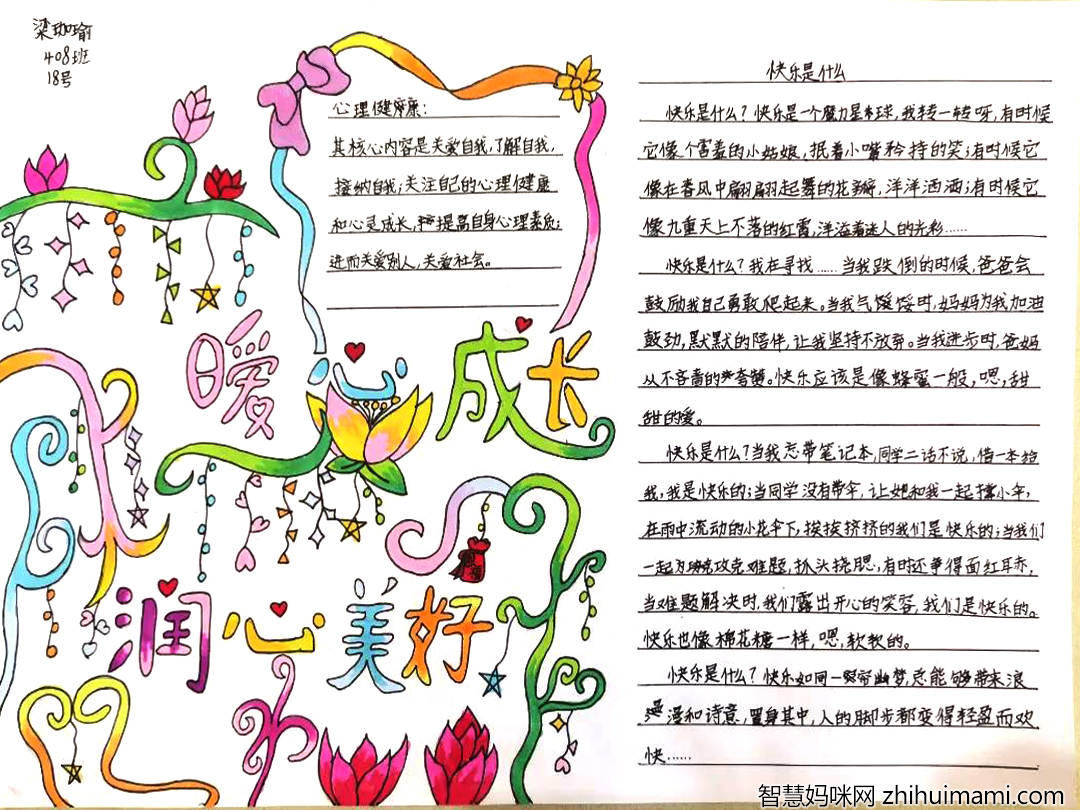 梁珈瑜
408班
18号
心理健康:
其核心内容是关爱自我,了解自我,
接纳自我;关注自己的心理健康
和心灵成长,提高自身心理素质;
进而关爱别人,关爱社会。
暖心成长
润心美好
快乐是什么
快乐是什么?快乐是一个魔力星球,我转一转呀,有时候
它像个害羞的小姑娘,抿着小嘴矜持的笑;有时候它
像在春风中翩翩起舞的花瓣,洋洋洒洒;有时候它
像九重天上不落的红霞,洋溢着迷人的光彩……
快乐是什么?我在寻找……当我跌倒的时候,爸爸会
鼓励我自己勇敢爬起来。当我气馁时,妈妈为我加油
鼓劲,默默的陪伴,让我坚持不放弃。当我进步时,爸妈
从不吝啬的夸赞。快乐应该是像蜂蜜一般,嗯,甜
甜的爱。
快乐是什么?当我忘带笔记本,同学二话不说,借一本给
我,我是快乐的;当同学没有带伞,让她和我一起撑小伞,
在雨中流动的小花伞下,挨挨挤挤的我们是快乐的;当我们
一起为攻克难题,抓头挠腮,有时还争得面红耳赤,
当难题解决时,我们露出开心的笑容,我们是快乐的。
快乐也像棉花糖一样,嗯,软软的。
快乐是什么?快乐如同一帘幽梦,总能够带来浪
漫和诗意,置身其中,人的脚步都变得轻盈而欢
快……
智慧妈咪网 zhihuimami.com